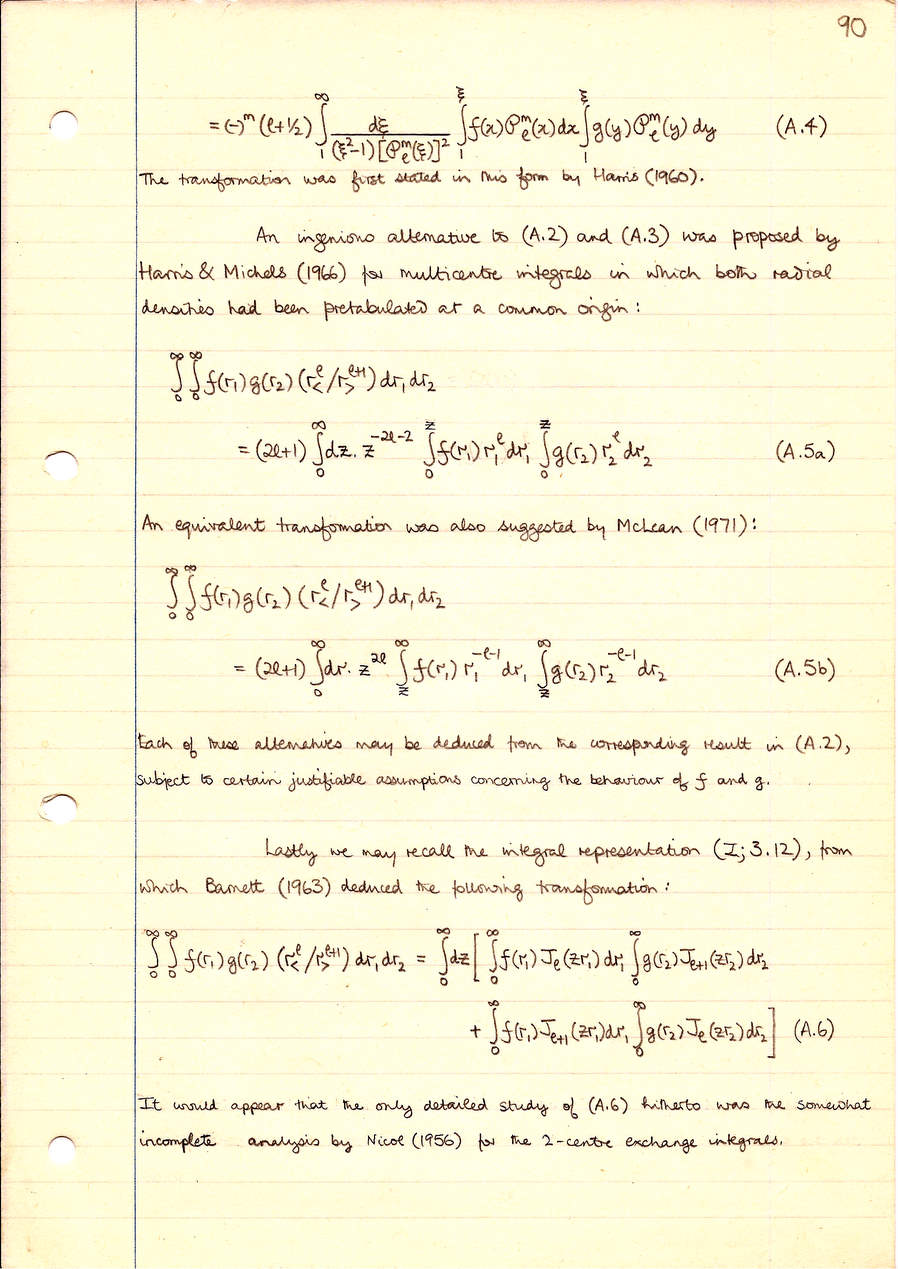 90
= (-)^m (ℓ+1/2) ∫_1^∞ dξ / ((ξ²-1) [𝒫_ℓ^m(ξ)]²) ∫_1^ξ f(x) 𝒫_ℓ^m(x) dx ∫_1^ξ g(y) 𝒫_ℓ^m(y) dy (A.4)
The transformation was first stated in this form by Harris (1960).
An ingenious alternative to (A.2) and (A.3) was proposed by
Harris & Michels (1966) for multicentre integrals in which both radial
densities had been pretabulated at a common origin:
∫_0^∞ ∫_0^∞ f(r₁) g(r₂) (r_<^ℓ / r_>^{ℓ+1}) dr₁ dr₂
= (2ℓ+1) ∫_0^∞ dz. z^{-2ℓ-2} ∫_0^z f(r₁) r₁^ℓ dr₁ ∫_0^z g(r₂) r₂^ℓ dr₂ (A.5a)
An equivalent transformation was also suggested by McLean (1971):
∫_0^∞ ∫_0^∞ f(r₁) g(r₂) (r_<^ℓ / r_>^{ℓ+1}) dr₁ dr₂
= (2ℓ+1) ∫_0^∞ dr. z^{2ℓ} ∫_z^∞ f(r₁) r₁^{-ℓ-1} dr₁ ∫_z^∞ g(r₂) r₂^{-ℓ-1} dr₂ (A.5b)
Each of these alternatives may be deduced from the corresponding result in (A.2),
subject to certain justifiable assumptions concerning the behaviour of f and g.
Lastly we may recall the integral representation (I; 3.12), from
which Barnett (1963) deduced the following transformation:
∫_0^∞ ∫_0^∞ f(r₁) g(r₂) (r_<^ℓ / r_>^{ℓ+1}) dr₁ dr₂ = ∫_0^∞ dz [ ∫_0^∞ f(r₁) J_ℓ(zr₁) dr₁ ∫_0^∞ g(r₂) J_{ℓ+1}(zr₂) dr₂
+ ∫_0^∞ f(r₁) J_{ℓ+1}(zr₁) dr₁ ∫_0^∞ g(r₂) J_ℓ(zr₂) dr₂ ] (A.6)
It would appear that the only detailed study of (A.6) hitherto was the somewhat
incomplete analysis by Nicol (1956) for the 2-centre exchange integrals.